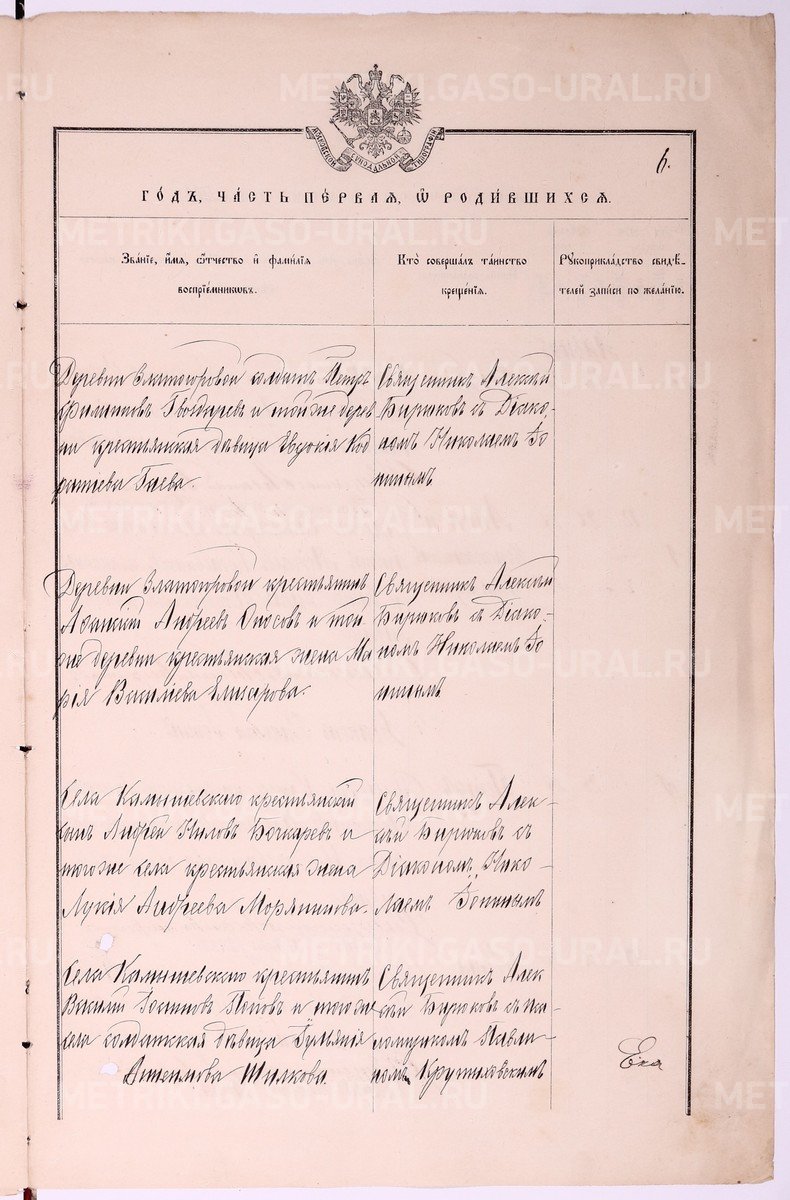 6.
ГО́ДЪ, ЧА́СТЬ ПЕ́РВАЯ, Ѡ҆ РОДИ́ВШИХСЯ.
Зва́нїе, и҆́мя, ѻ҆́тчество и҆ фами́лїя
воспрїе́мниковъ.
Кто̀ соверша́лъ та́инство
креще́нїя.
Рꙋкоприкла́дство свидѣ́-
телей за́писи по жела́нїю.
Деревни Златогоровой солдатъ Петръ
Филиповъ Гвоздаревъ и тойже дерев
ни крестьянская дѣвица Евдокія Код
ратіева Гаева.
Священникъ Алексѣй
Бирюковъ съ Діако-
номъ Николаемъ
Деревни Златогоровой крестьянинъ
Андреевъ и той
же деревни крестьянская жена Ма
рія Василіева Елизарова.
Священникъ Алексѣй
Бирюковъ съ Діако-
номъ Николаемъ
Села Камышевскаго крестьянскій
сынъ Андрей Ниловъ Бочкаревъ и
тогоже села крестьянская жена
Лукія Андреева Морянинова.
Священникъ Алек-
сѣй Бирюковъ съ
Діакономъ Нико-
лаемъ
Села Камышевскаго крестьянинъ
Василій Поповъ и тогоже
села солдатская дѣвица Іуліанія
Шилкова.
Священникъ Алек
сѣй Бирюковъ съ пса-
ломщикомъ Павли
номъ Крутиховскимъ
Ека
METRIKI.GASO-URAL.RU